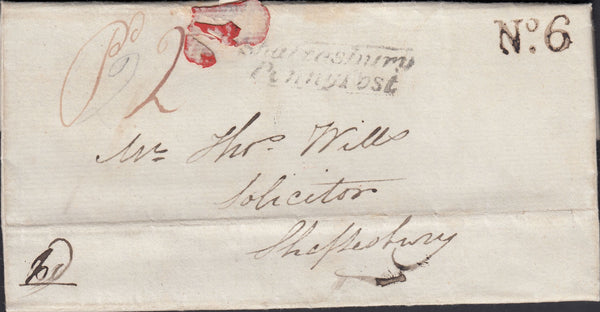 Pd 2
Shaftesbury
Penny Post
No. 6
Mr Thos. Wills
Solicitor
Shaftesbury